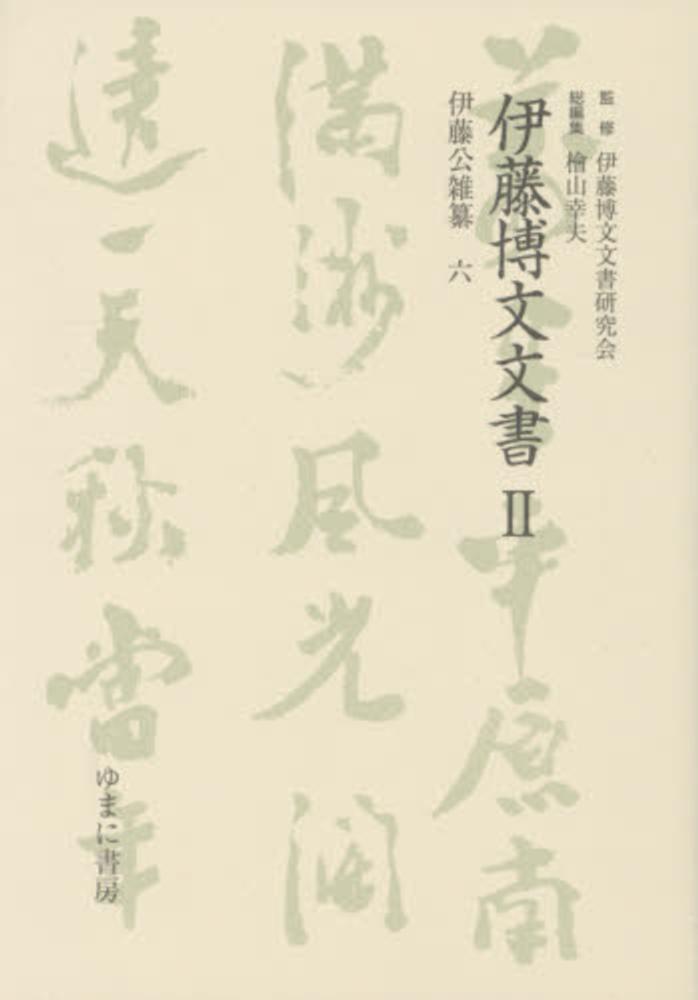 監修 伊藤博文文書研究会
総編集 檜山幸夫
伊藤博文文書 Ⅱ
伊藤公雑纂 六
萬里平原南
満洲風光闊
遠一天秋當年
ゆまに書房